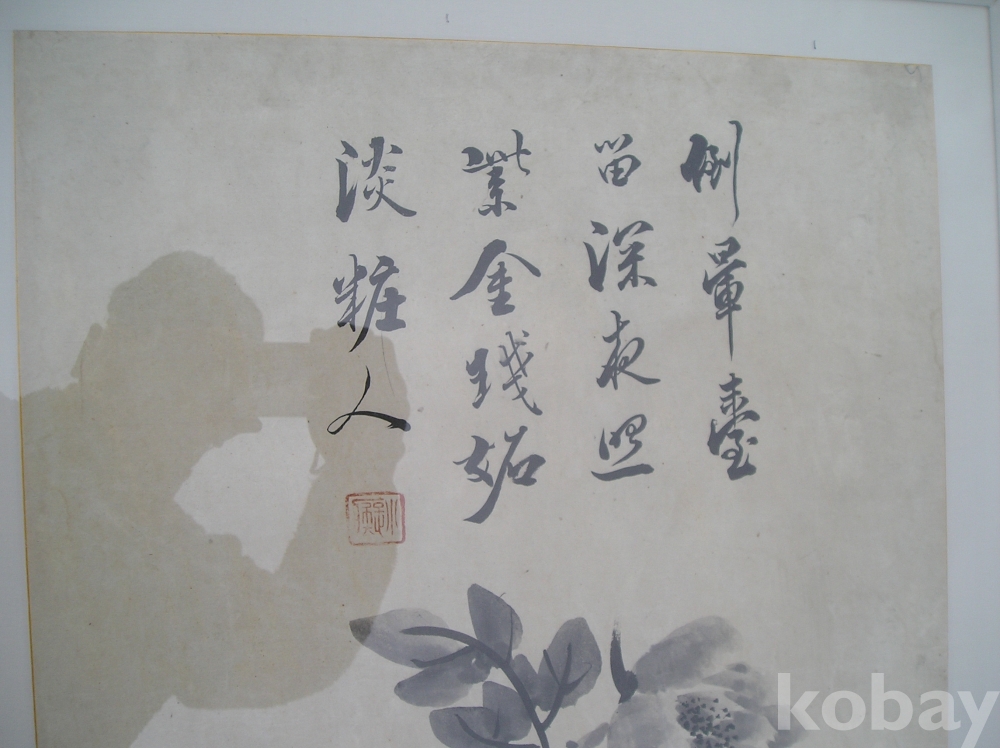 倒暈臺
畱深夜照
紫金錢妬
淡粧人
kobay